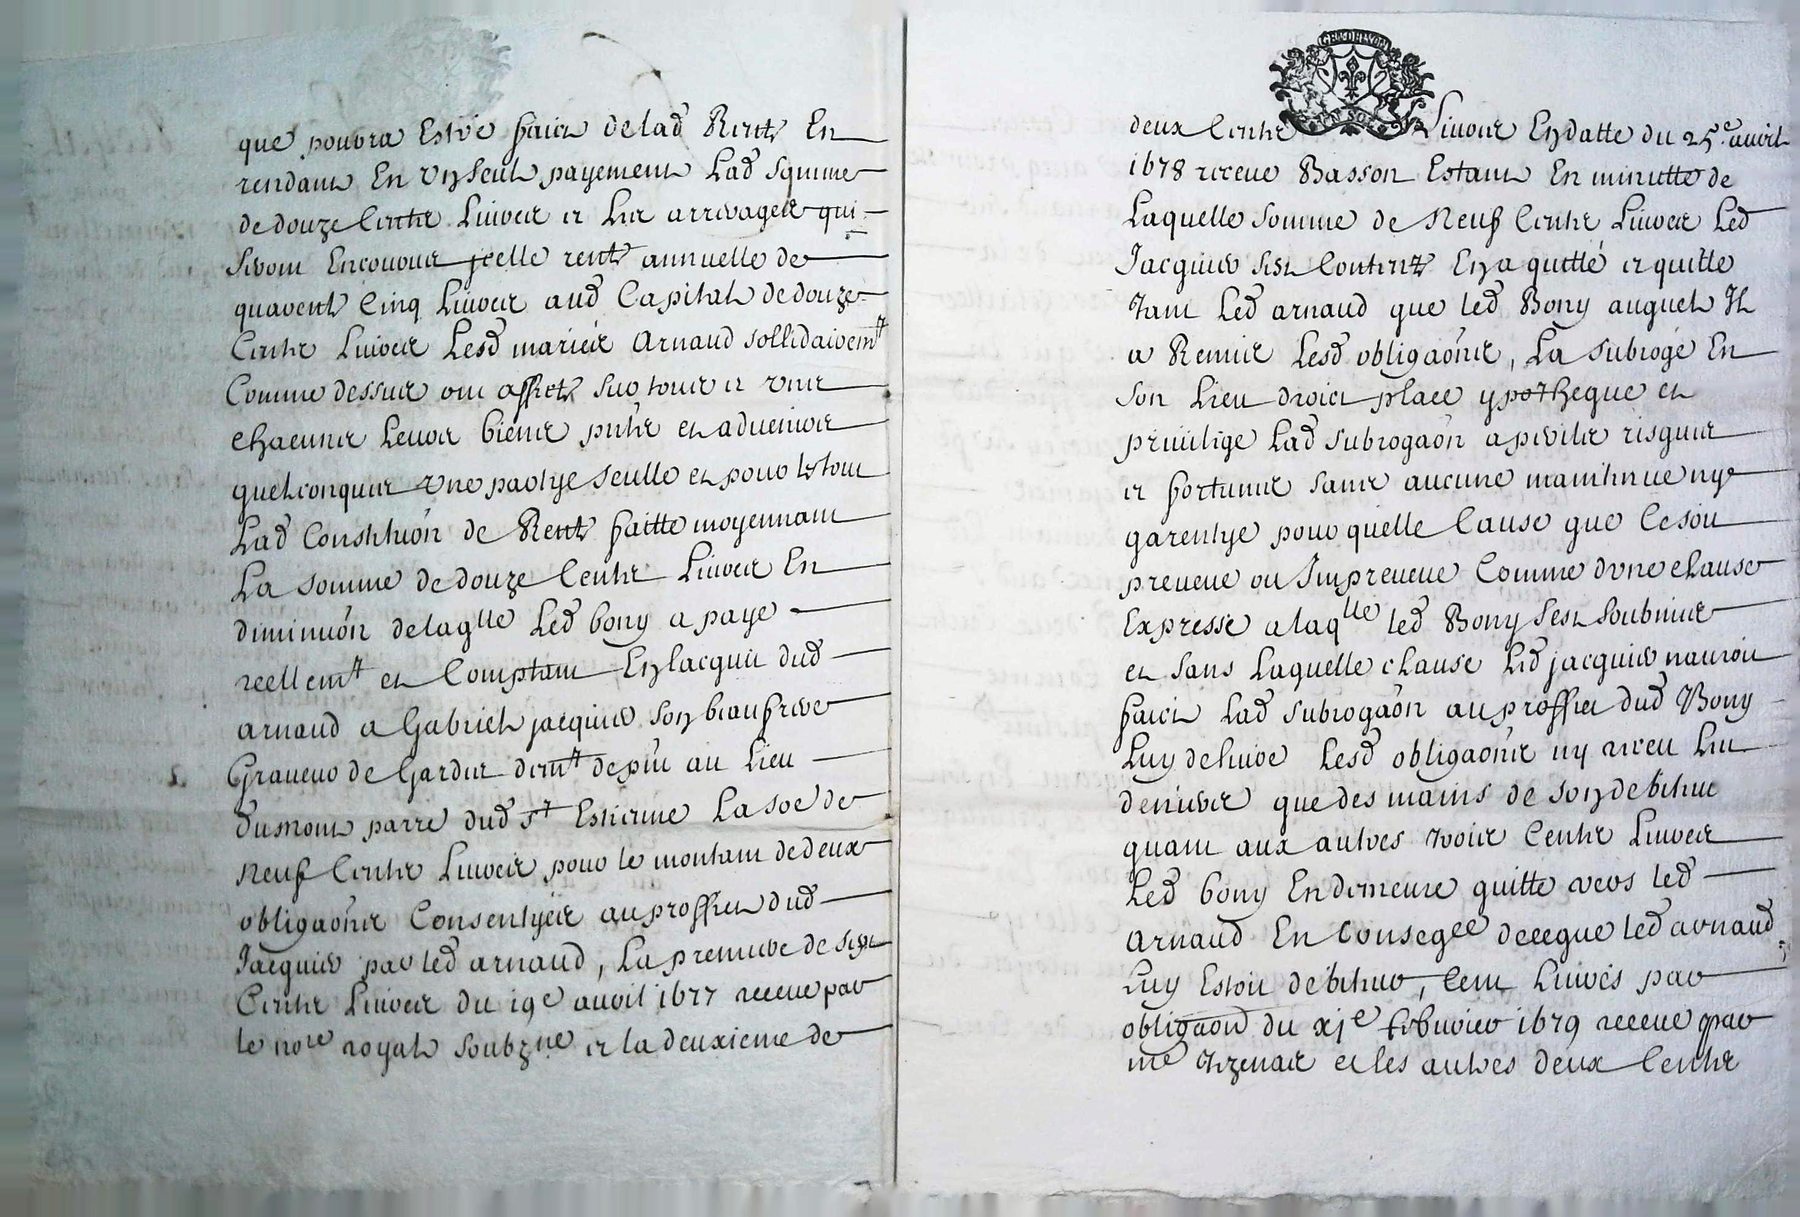 que pouvra Estre faict de lad Rente En
rendant En un seul payement Lad somme
de douze Cents Livres et les arrerages qui
seront Encourus jcelle rente annuelle de
quarente Cinq Livres aud Capital de douze
Cents Livres Lesd mariés Arnaud sollidairemt
Comme dessus ont affecté sur tous et uns
chacuns leurs biens pnts et advenir
quelconques une partye seulle et pour le tout
Lad Constituon de Rente faitte moyennant
La somme de douze Cents Livres En
diminuon de laqlle Led bony a paye
reellemt et Comptant En lacquit dud
arnaud a Gabriel jacquier son beaufrere
Graveur de Gardes demt depnt au Lieu
dumont parre dud St Estienne La soe de
neuf Cents Livres pour le montant de deux
obligaons Consentyes au proffict dud
Jacquier par led arnaud, La premiere de sept
Cents Livres du 19e avril 1677 receue par
le nore royal soubzne et la deuxieme de
GEN DE LYON
deux Cents Livres En datte du 25e avril
1678 receue Basson Estant En minutte de
Laquelle somme de Neuf Cents Livres Led
Jacquier sest Contenté En a quitté et quitte
tant Led arnaud que led Bony auquel Il
a Remis Lesd obligaons, La subrogé En
son Lieu droict place ypotheque et
privilige Lad subrogaon a perils risques
et fortunes sans aucune maintenue ny
garentye pour quelle Cause que Ce soit
preveue ou Impreveue Comme dune clause
Expresse a laqlle led Bony sest soubmis
et sans Laquelle clause Led jacquier nauroit
faict Lad subrogaon au proffict dud Bony
Luy delivré Lesd obligaons ny receu Les
deniers que des mains de son debiteur
quant aux autres trois Cents Livres
Led bony En demeure quitte vers led
Arnaud En Conseqce de ce que led arnaud
Luy Estoit debiteur, Cent Livres par
obligaon du xje febvrier 1679 receue par
me Thzenas et les autres deux Cents